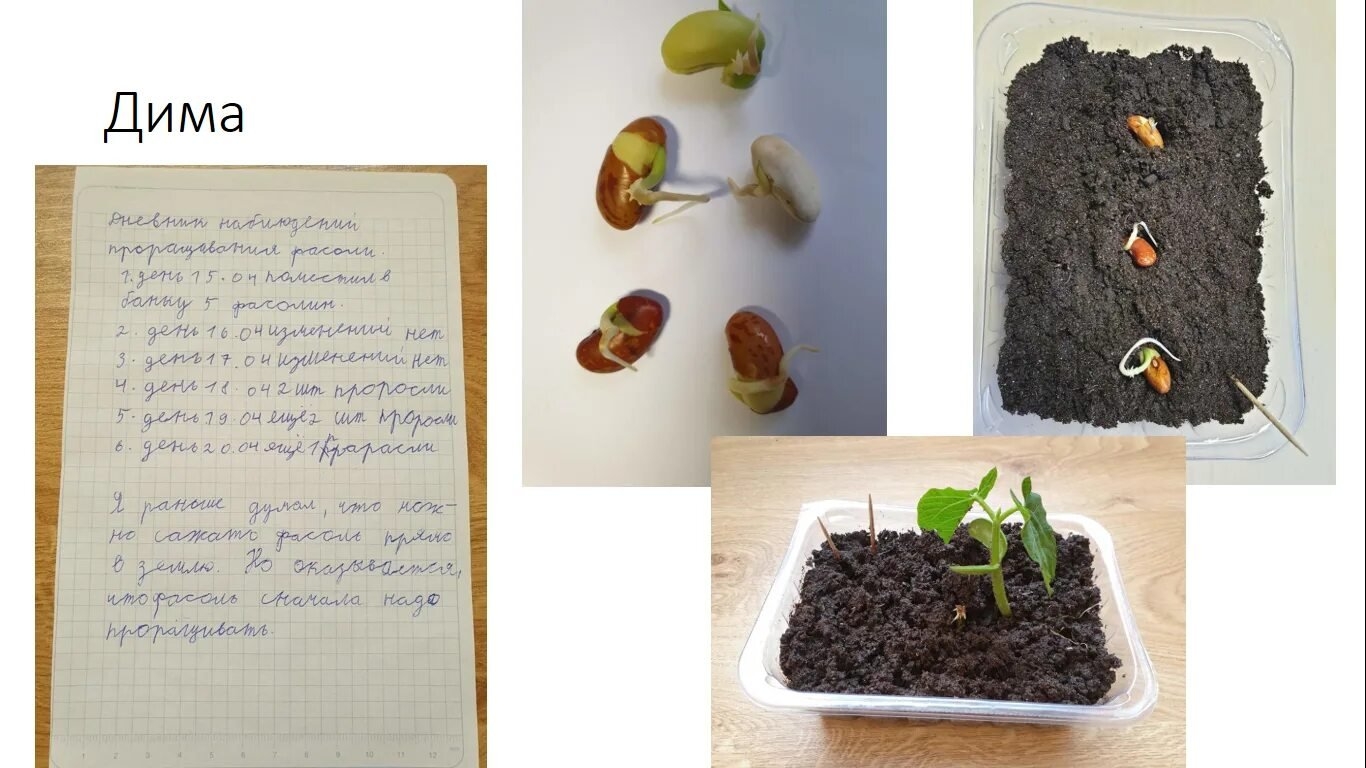 Дима
Дневник наблюдений
проращивания фасоли.
1. день 15.04 поместил в
банку 5 фасолин.
2. день 16.04 изменений нет
3. день 17.04 изменений нет
4. день 18.04 2 шт проросли
5. день 19.04 еще 2 шт проросли
6. день 20.04 ещё 1 прарасли
Я раньше думал, что нож-
но сажать фасоль прямо
в землю. Но оказывается,
что фасоль сначала надо
проращивать.
1 2 3 4 5 6 7 8 9 10 11 12